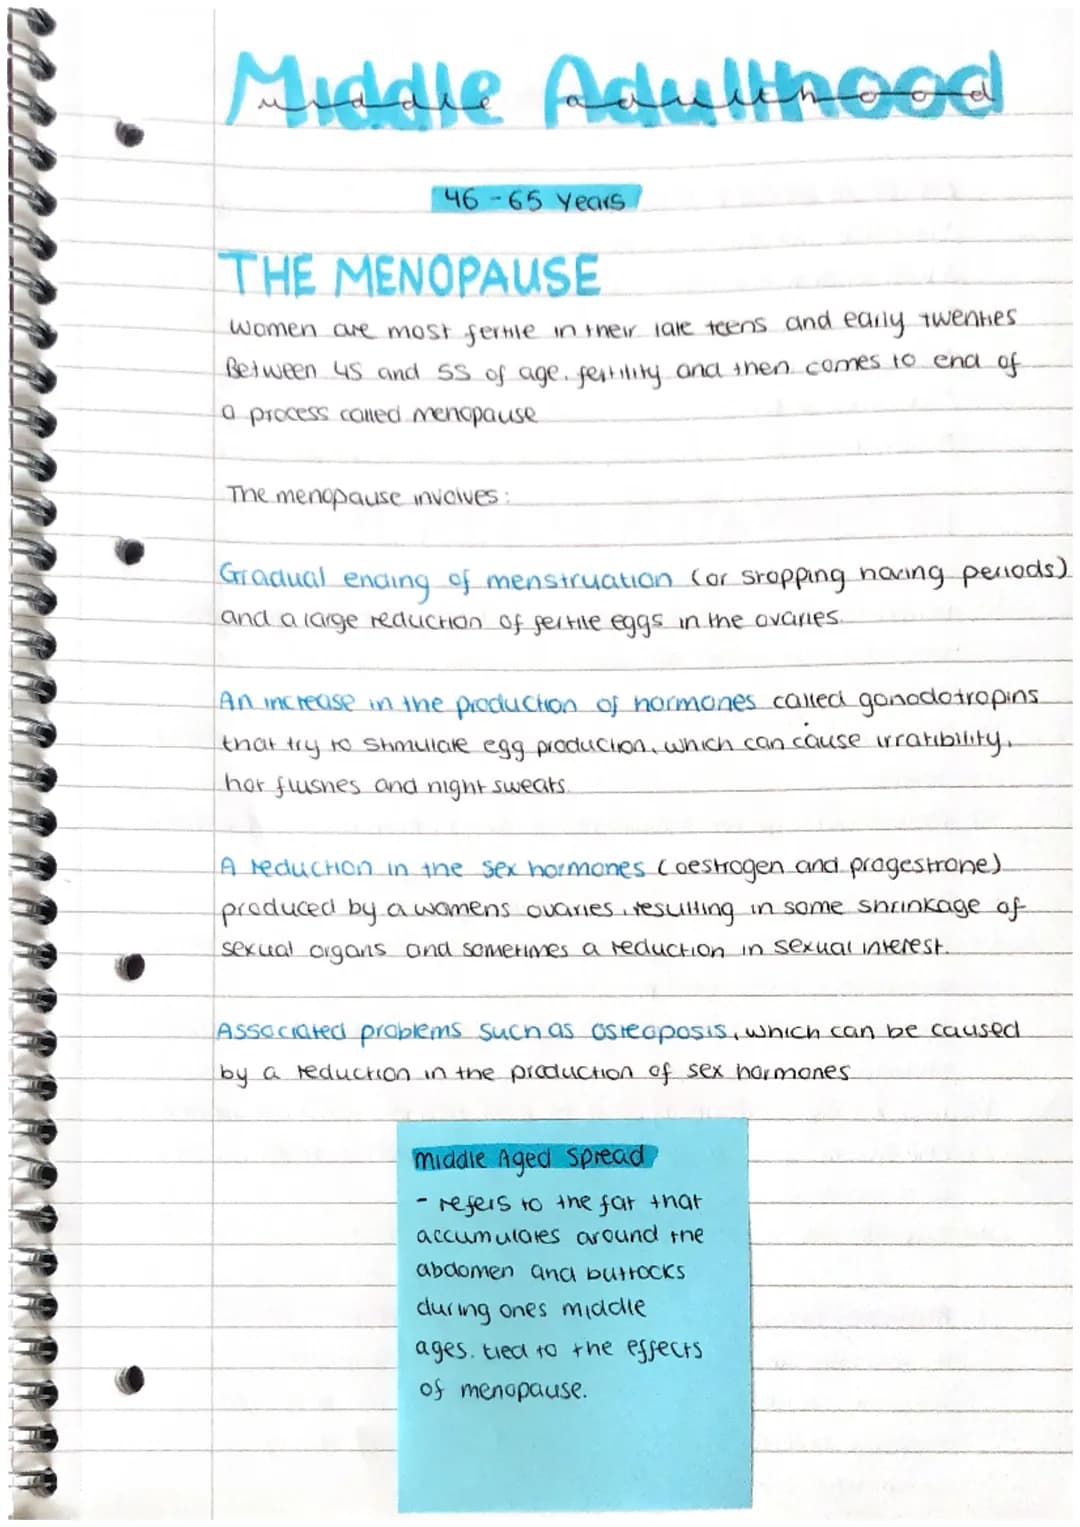 Middle Adulthood
46 - 65 Years
THE MENOPAUSE
Women are most fertile in their late teens and early twenties
Between 45 and 55 of age, fertility and then comes to end of
a process called menopause
The menopause involves:
Gradual ending of menstruation (or stopping having periods)
and a large reduction of fertile eggs in the ovaries.
An increase in the production of hormones called gonodotropins
that try to stimulate egg production, which can cause irratibility,
hot flushes and night sweats.
A reduction in the sex hormones (oestrogen and progestrone)
produced by a womens ovaries, resulting in some shrinkage of
sexual organs and sometimes a reduction in sexual interest.
Associated problems such as osteoposis, which can be caused
by a reduction in the production of sex hormones
middle Aged Spread
- refers to the fat that
accumulates around the
abdomen and buttocks
during ones middle
ages. tied to the effects
of menopause.